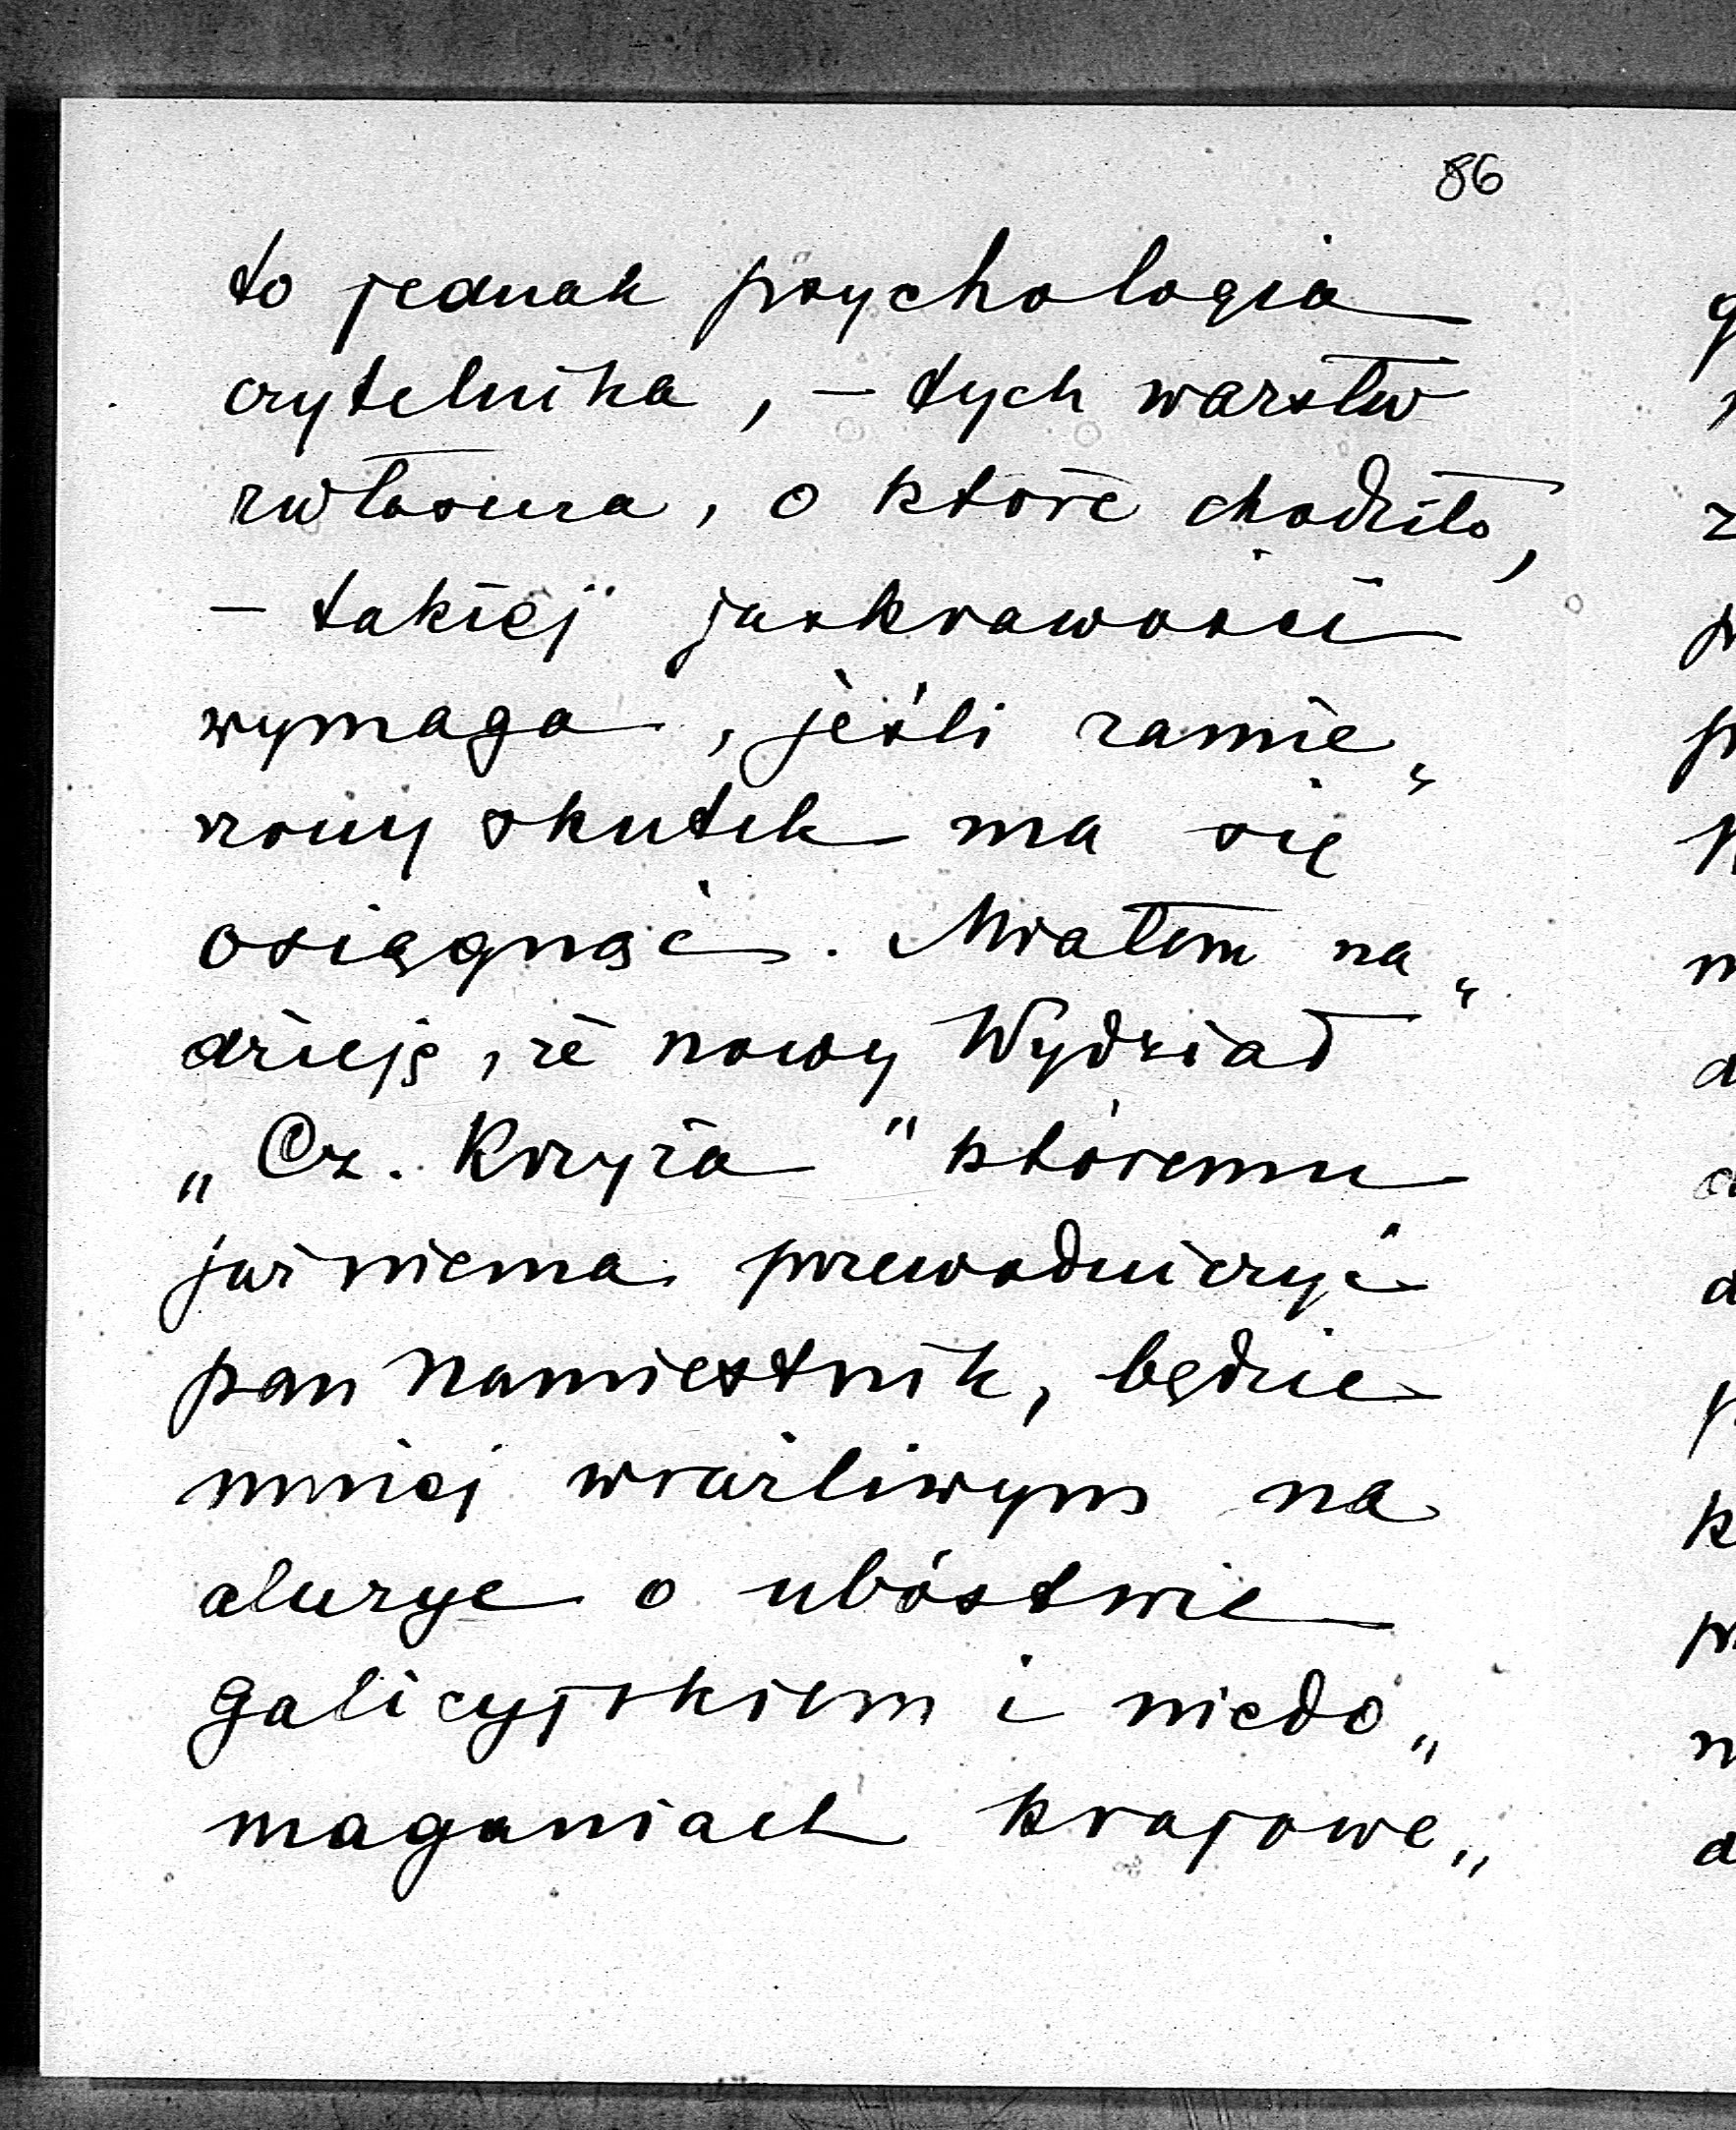 86
to jednak psychologia
czytelnika, – tych warstw
zwłaszcza, o które chodziło,
– takiej jaskrawości
wymaga, jeśli zamie„
rzony skutek ma się
osiągnąć. Miałem na„
dzieję, że nowy Wydział
„Cz. Krzyża" któremu
już niema przewodniczyć
pan Namiestnik, będzie
mniej wrażliwym na
aluzye o ubóstwie
galicyjskiem i niedo„
maganiach krajowe„